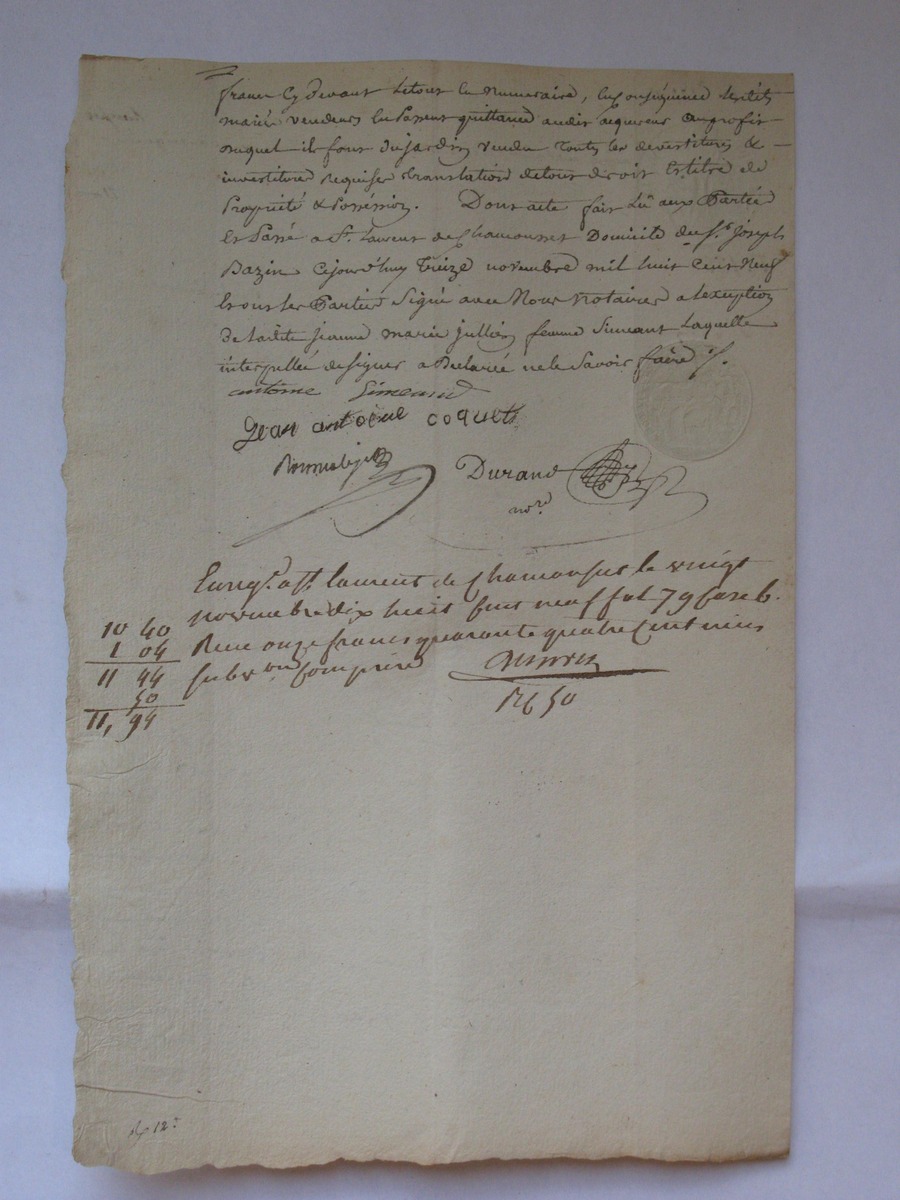 francs cy devant le tout en numeraire, en conséquence lesdits
mariés vendeurs en passent quittance audit acquereur au profit
duquel ils font du jardin vendu toutes les devestitures &
investitures requises translation de tous droits et titre de
Propriété & Possession. Dont acte fait Lû aux Parties
Et Passé a St. Laurent de Chamousset Domicile du Sr. Joseph
Bazin cejourd'huy treize novembre mil huit cent neuf
Et ont les Parties Signé avec Nous Notaires a l'exeption
de ladite jeanne marie jullien femme Simeant Laquelle
interpellée de signer a Declaré ne le Savoir faire ./.
antoine Simeand
Jean antoine coquet
Durand
nore.
Enregt. a St. laurent de Chamousset le vingt
novembre dix huit cent neuf fol 79 Case 6.
Recu onze francs quarante quatre Centimes
subvon Comprise
10 40
1 04
11 44
50
11, 94
R 6 50